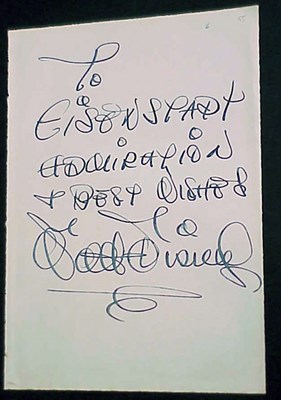 To
EISENSTADT
ADMIRATION
& BEST WISHES
Walt Disney